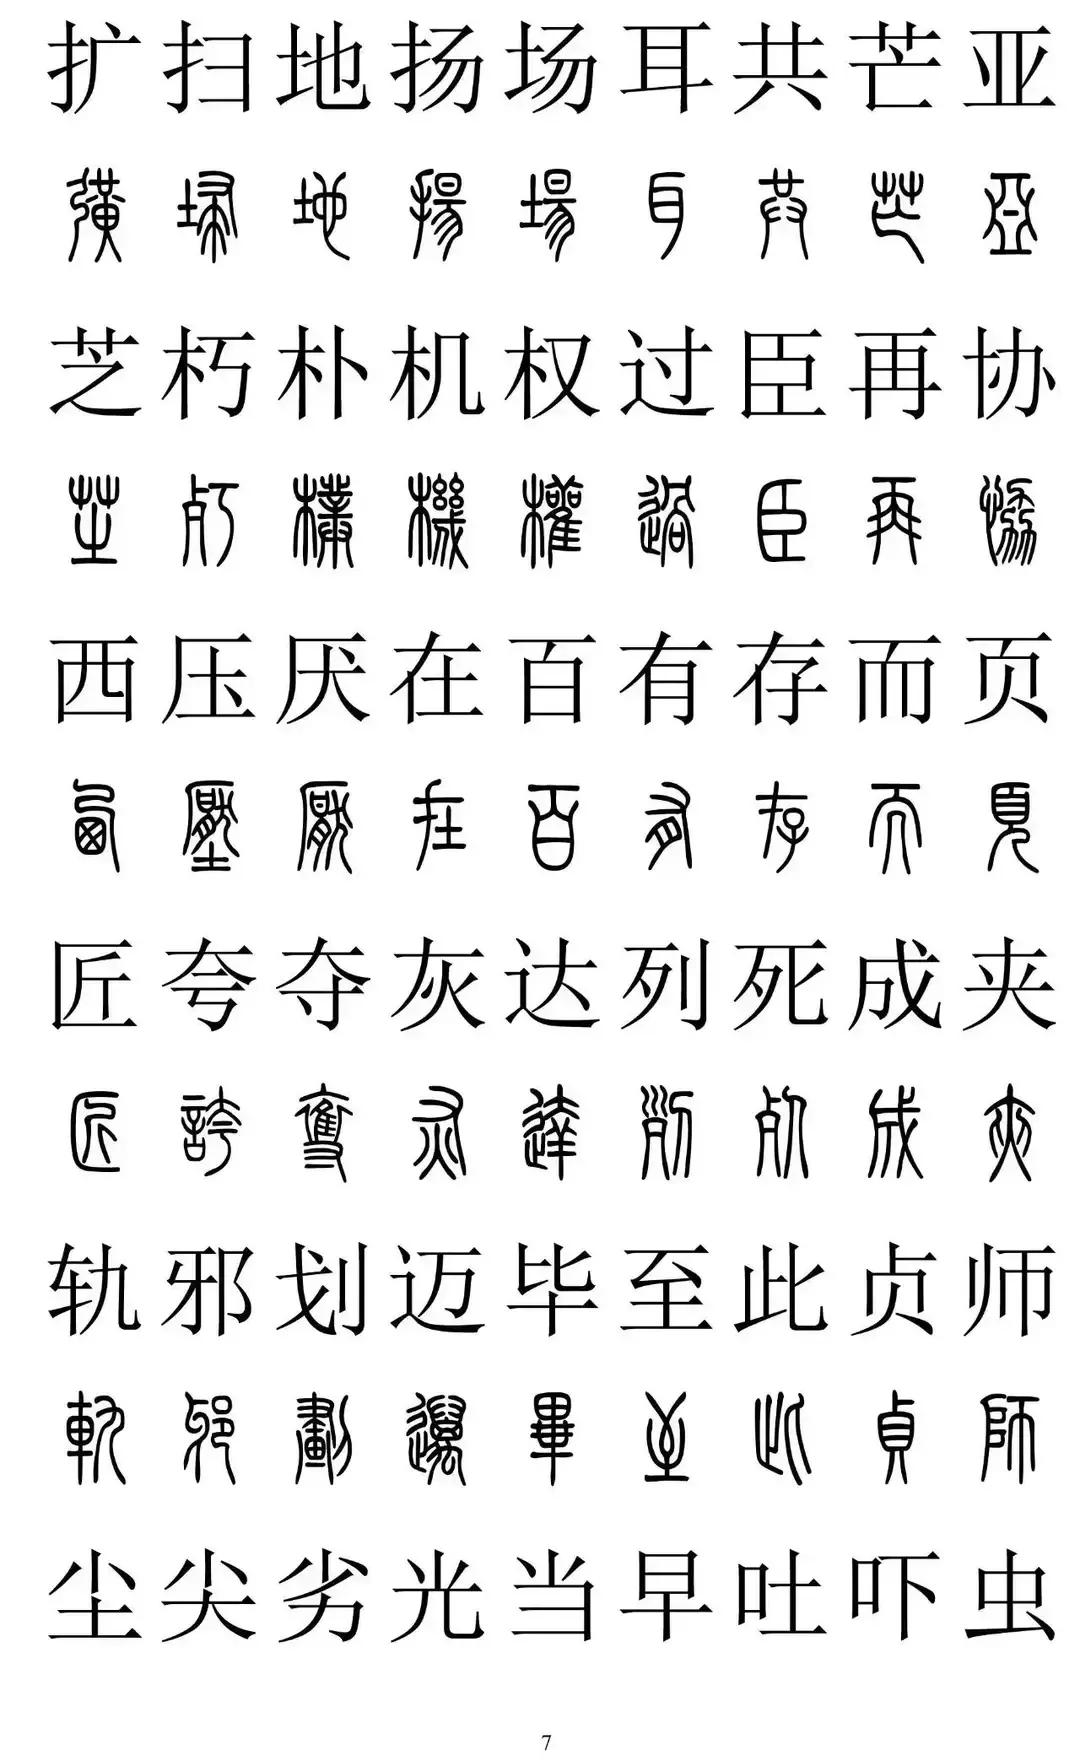 扩扫地扬场耳共芒亚
彉埽地揚場耳共芒亞
芝朽朴机权过臣再协
芝朽樸機權過臣再協
西压厌在百有存而页
西壓厭在百有存而頁
匠夸夺灰达列死成夹
匠誇奪灰達列死成夾
轨邪划迈毕至此贞师
軌邪劃邁畢至此貞師
尘尖劣光当早吐吓虫
7